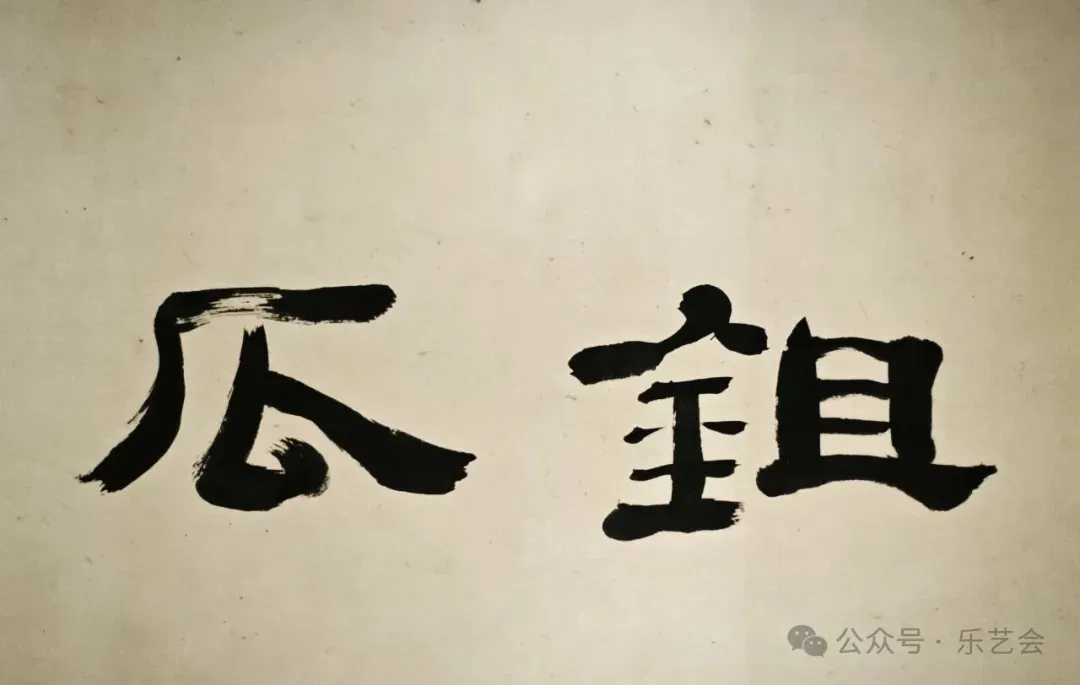 鉏瓜
公众号·乐艺会